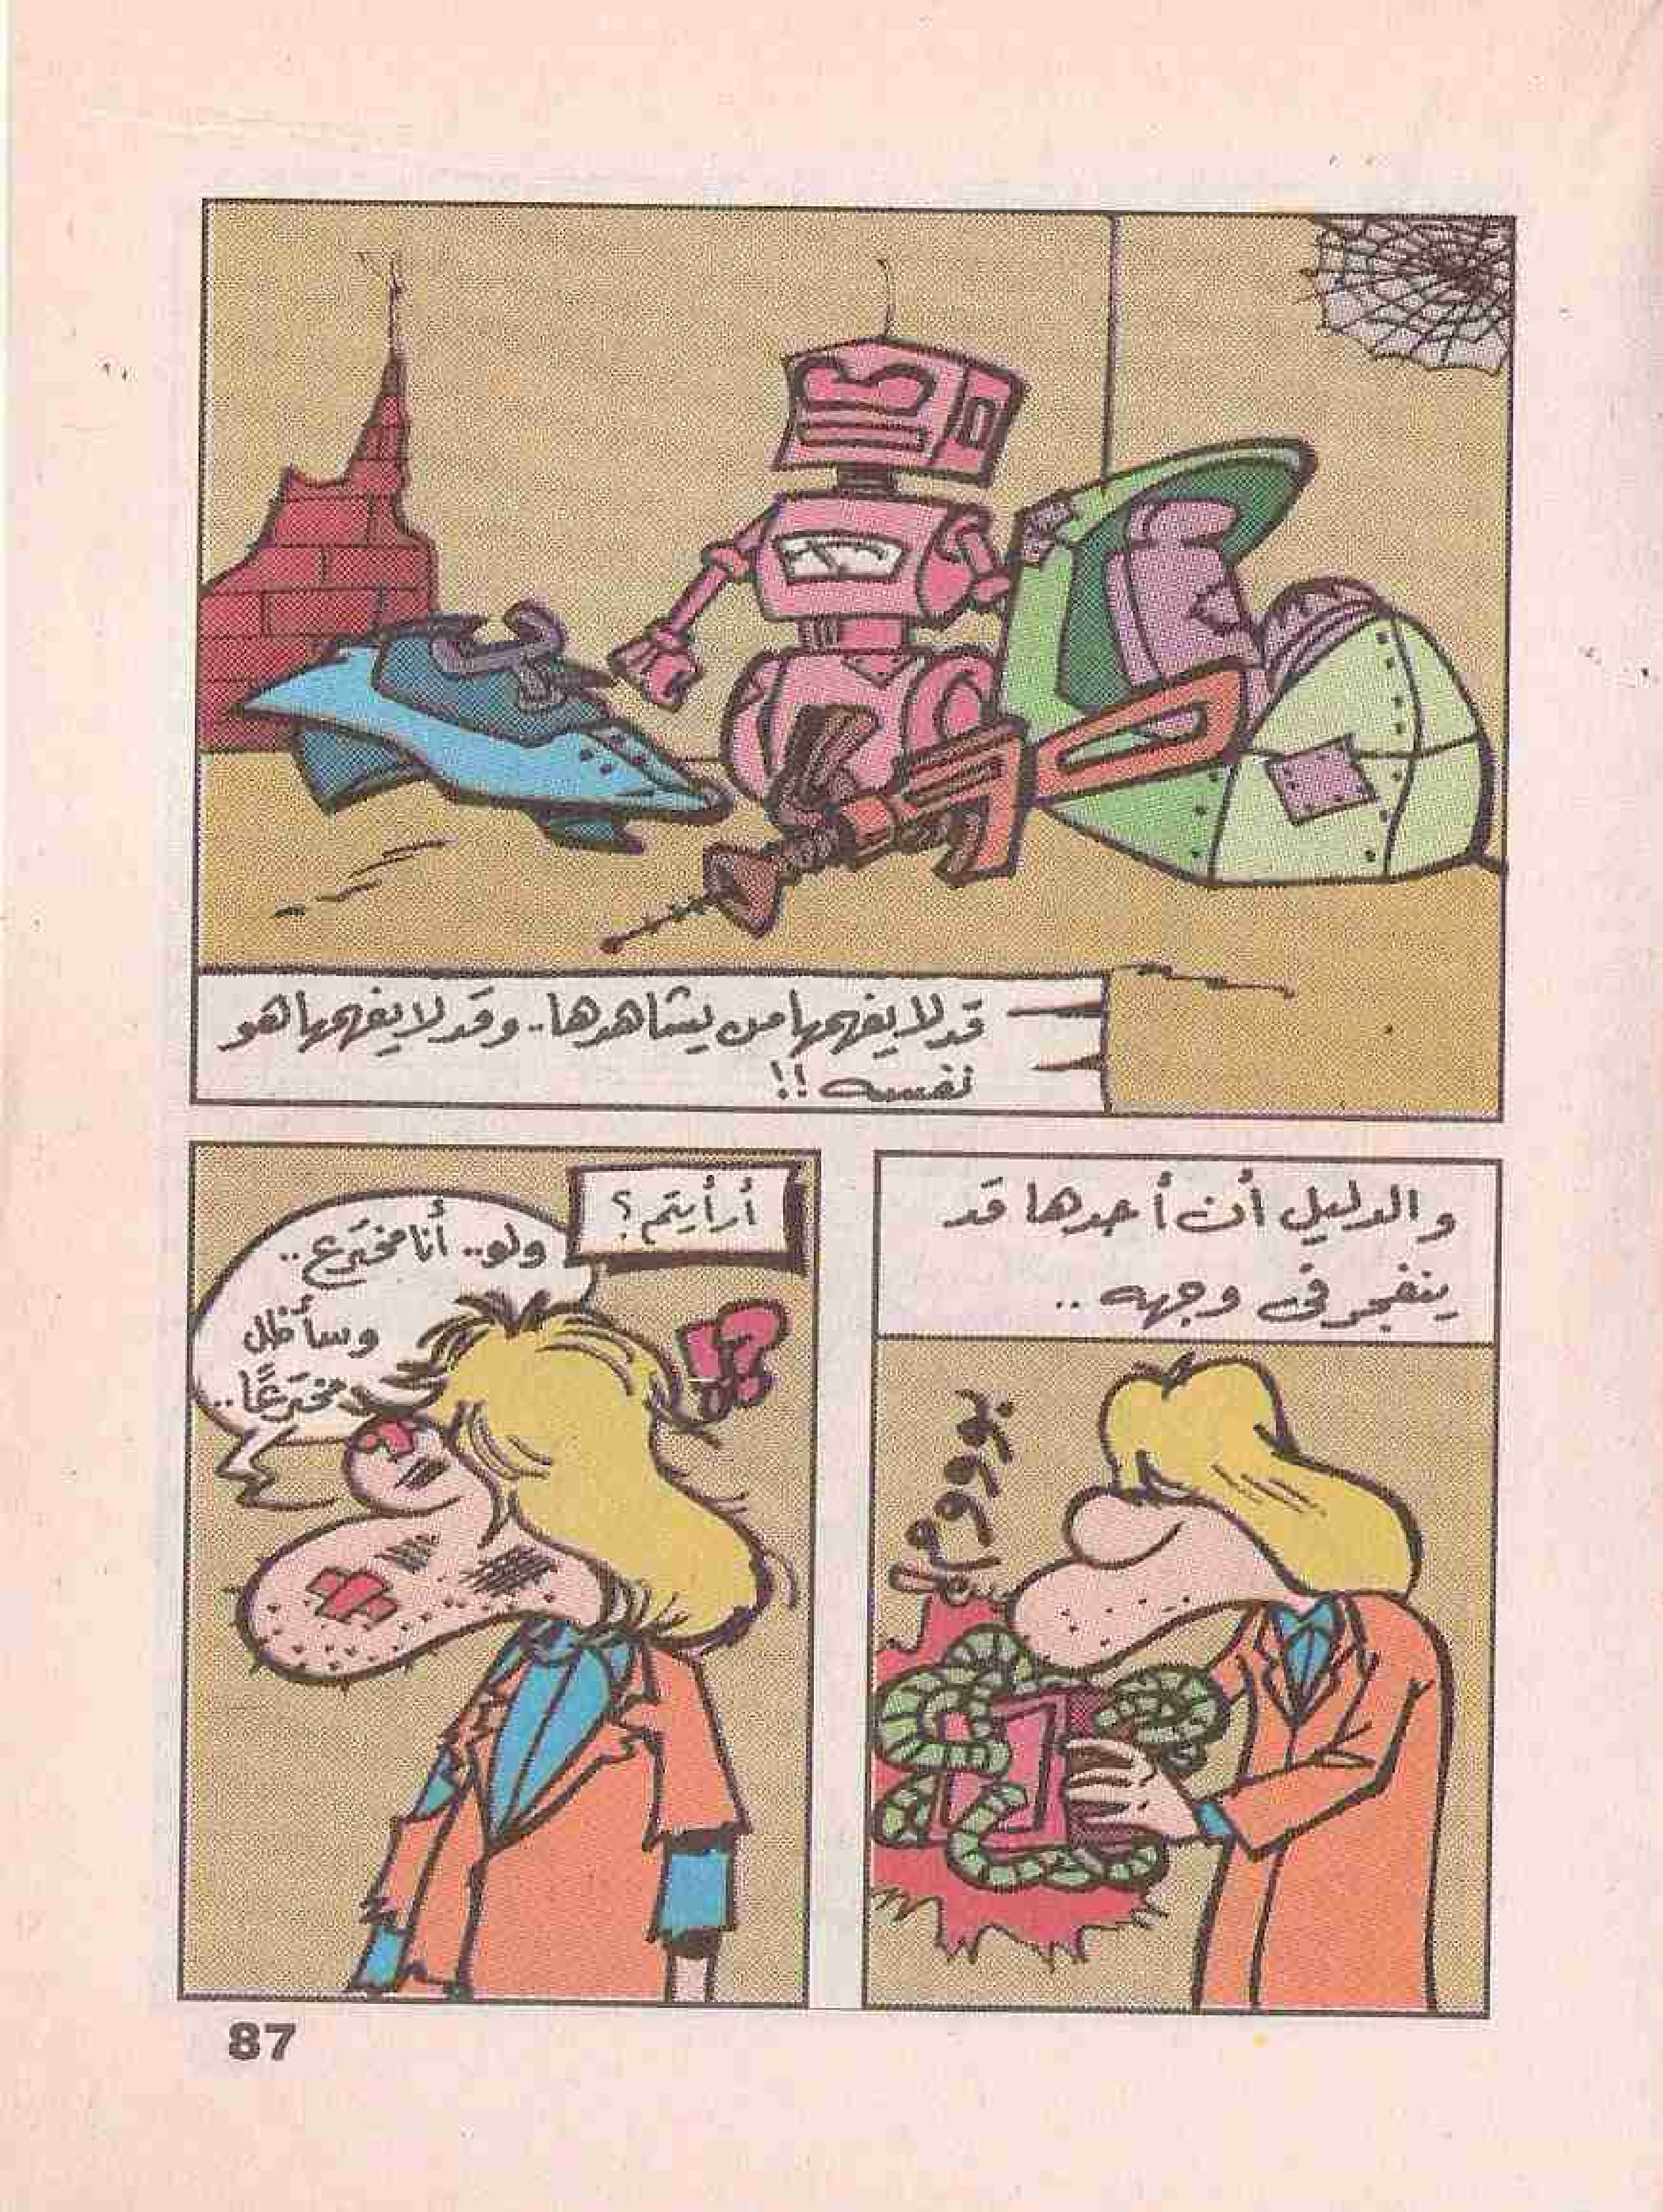 قد لا يفهمها من يشاهدها.. وقد لا يفهمها هو
نفسه !!
والدليل أن أحدها قد
ينفجر فى وجهه ..
بوووم!
أرأيتم ؟
ولو.. أنا مخترع..
وسأظل
مخترعًا..
؟!
87